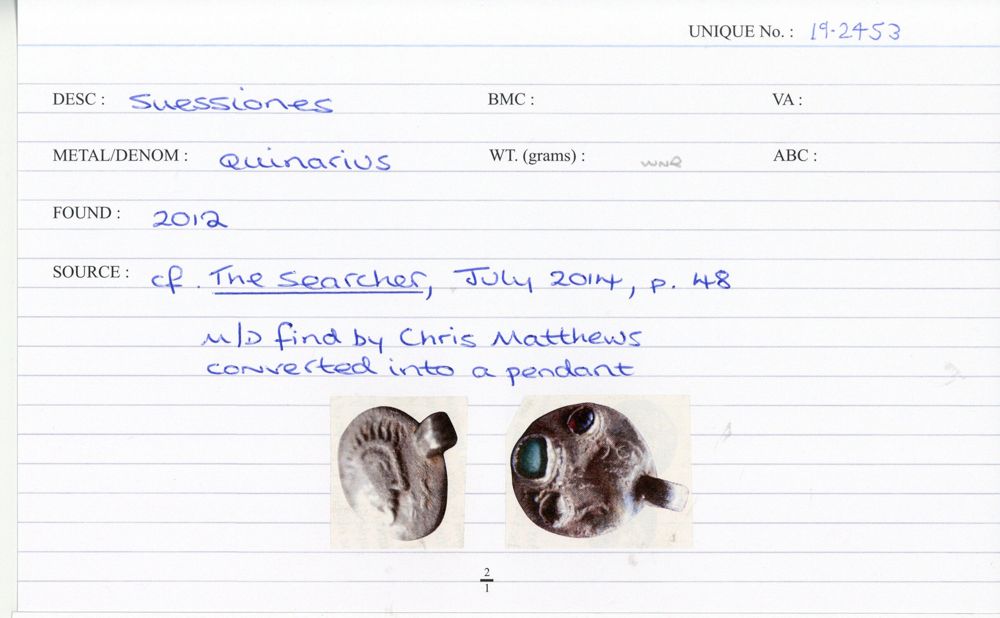 UNIQUE No. : 19-2453
DESC : Suessiones BMC : VA :
METAL/DENOM : Quinarius WT. (grams) : WNR ABC :
FOUND : 2012
SOURCE : cf. The Searcher, July 2014, p. 48
M/D find by Chris Matthews
converted into a pendant
2
1